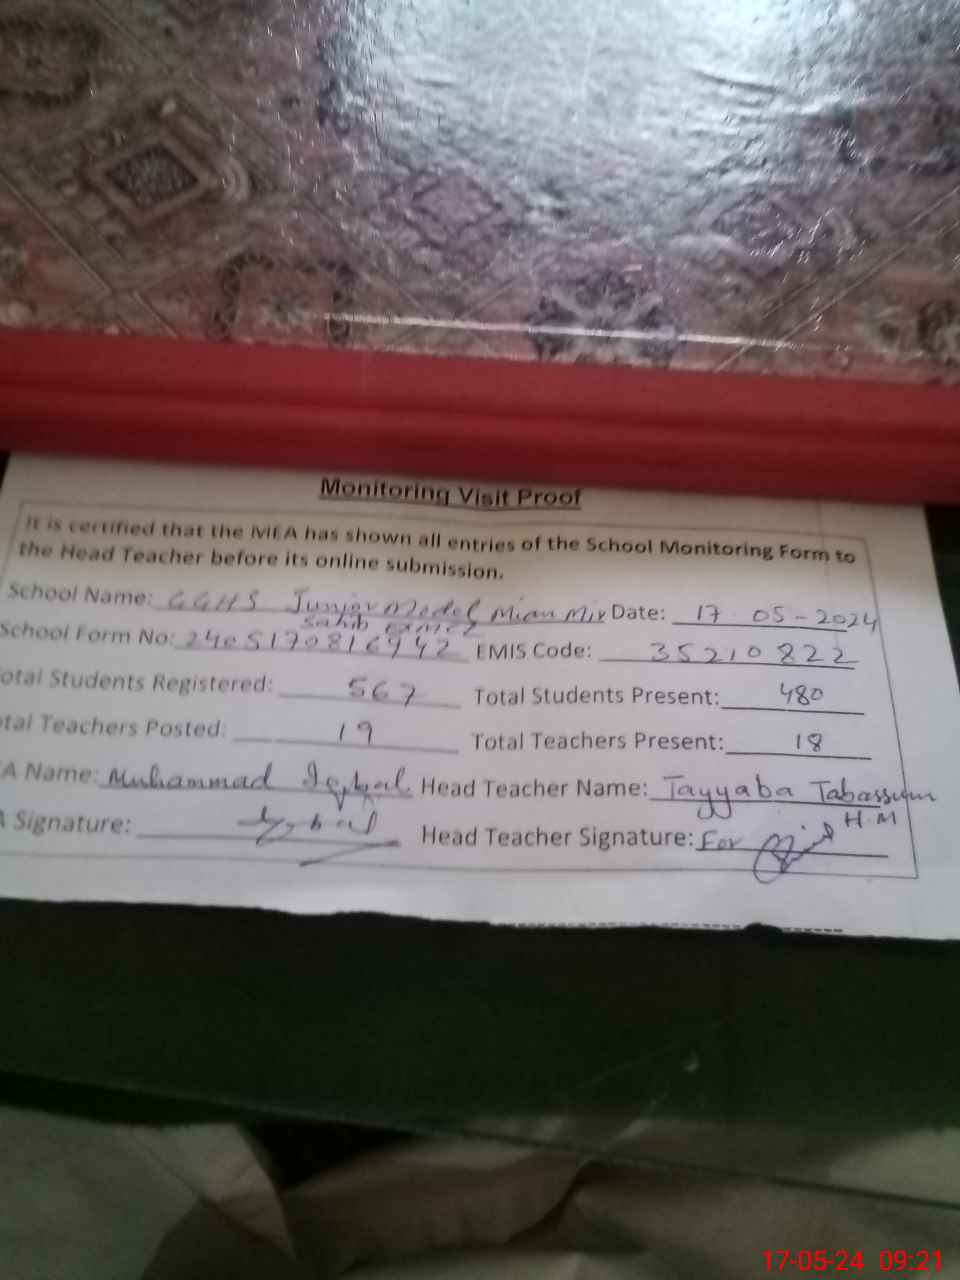 Monitoring Visit Proof
It is certified that the MEA has shown all entries of the School Monitoring Form to
the Head Teacher before its online submission.
School Name: GGHS Junior Model Mian Mir Date: 17-05-2024
Sahib
School Form No: EMIS Code: 35210822
otal Students Registered: 567 Total Students Present: 480
tal Teachers Posted: 19 Total Teachers Present: 18
A Name: Muhammad Iqbal Head Teacher Name: Tayyaba Tabassum
H.M
A Signature: Iqbal Head Teacher Signature: For
17-05-24 09:21